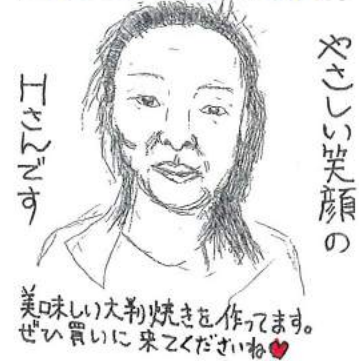 やさしい笑顔の
Hさんです
美味しい大判焼きを作ってます。
ぜひ買いに来てくださいね♥